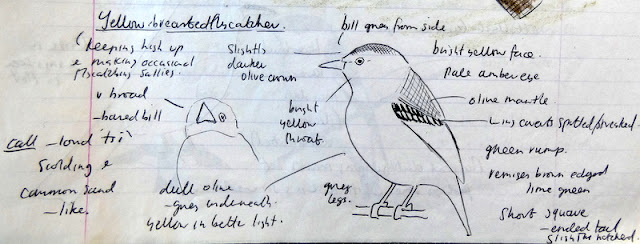 Yellow-breasted Flycatcher.
(Keeping high up
& making occasional
flycatching sallies.
v broad
-based bill
call - loud 'tii'
Scolding &
common sand
- like.
Slightly
darker
olive crown
bright
yellow
throat.
dull olive
- grey underneath.
yellow in better light.
grey
legs.
bill grey from side
bright yellow face.
Pale amber eye
olive mantle
Wing coverts spotted/streaked.
green rump.
remiges brown edged
lime green
Short square
- ended tail
slightly notched.